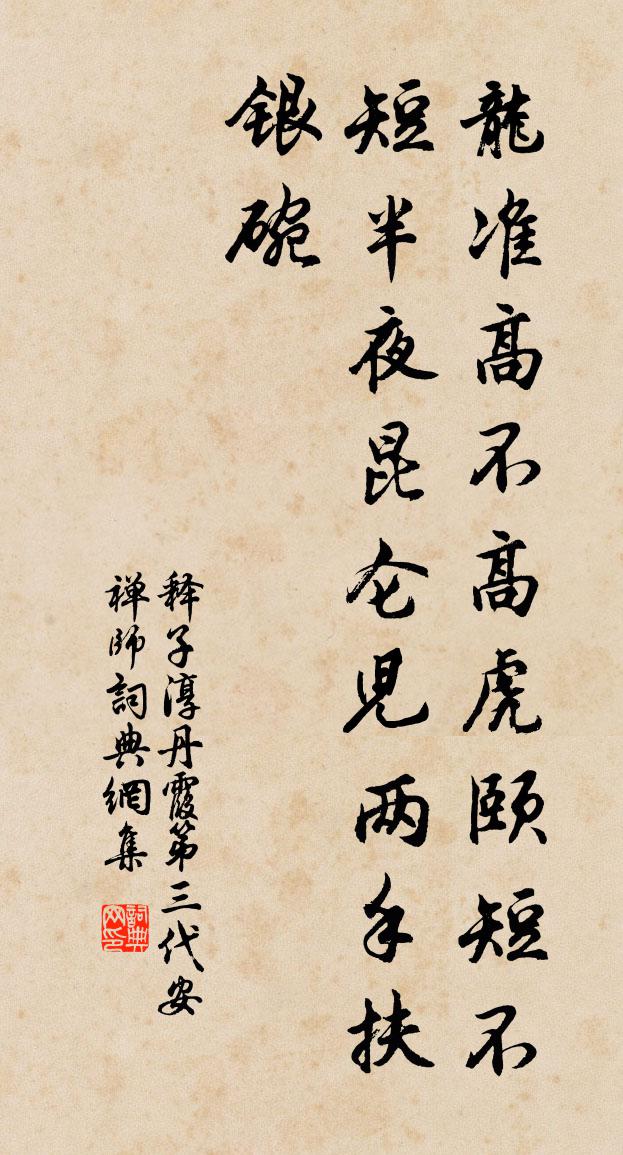 龍准高不高虎頤短不
短半夜昆仑児两手扶
銀碗
释子淳丹霞第三代安
禅師詞典網集
詞典网印